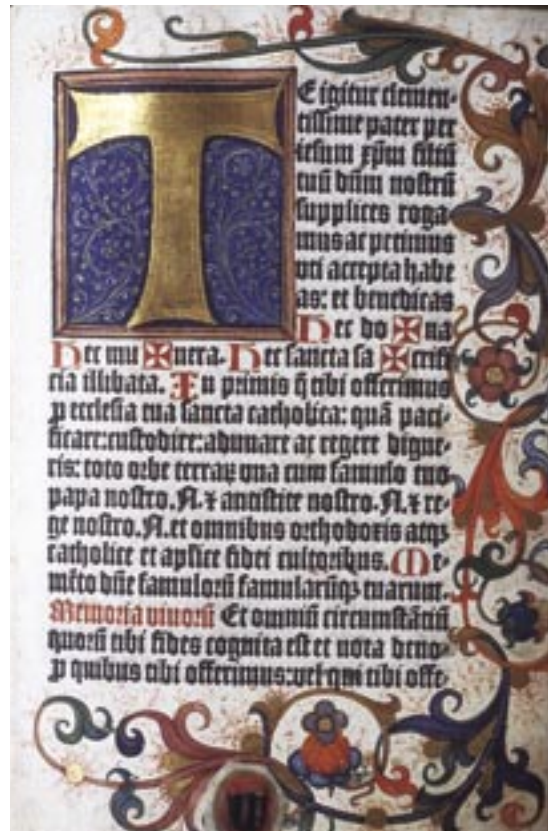 T
E igitur clemen-
tissime pater per
iesum xp̄m filiū
tuū dn̄m nostrū
supplices roga
mus ac petimus
uti accepta habe
as: et benedicas
Hec do ✠ na
Hec mu ✠ nera. Hec sancta sa ✠ crifi
cia illibata. In primis q̄ tibi offerimus
ꝓ ecclesia tua sancta catholica: quā paci-
ficare: custodire: adunare ac regere digne-
ris: toto orbe terraꝝ una cum famulo tuo
papa nostro. N. ⁊ antistite nostro. N. ⁊ re-
ge nostro. N. et omnibus orthodoxis atqꝫ
catholice et apl̄ice fidei cultoribus. Me-
mēto dn̄e famuloꝝ famularūqꝫ tuarum.
Memoria vivorū Et omniū circumstātiū
quorū tibi fides cognita est et nota devo-
ꝓ quibus tibi offerimus: vel qui tibi offe-